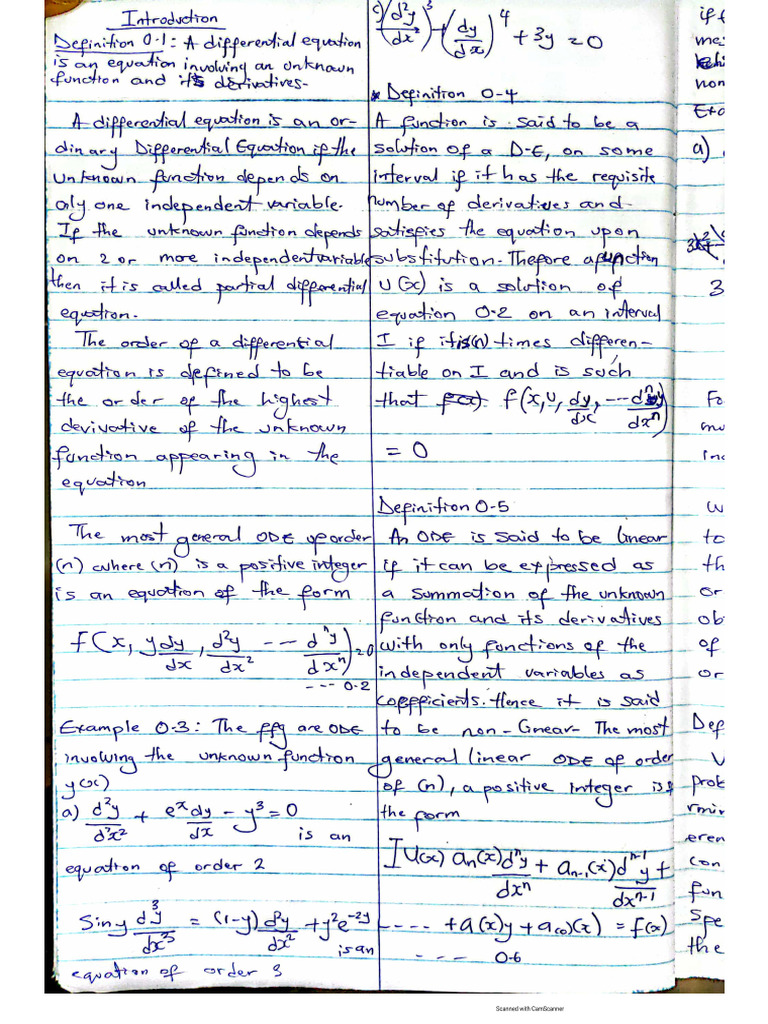 Introduction
Definition 0.1: A differential equation
is an equation involving an unknown
function and its derivatives-
A differential equation is an or-
dinary Differential Equation if the
unknown function depends on
only one independent variable.
If the unknown function depends
on 2 or more independent variable
then it is called partial differential
equation.
The order of a differential
equation is defined to be
the order of the highest
devivative of the unknown
function appearing in the
equation
The most general ODE of order
(n) where (n) is a positive integer
is an equation of the form
f(x, y dy/dx, d²y/dx² --- dⁿy/dxⁿ)=0
--- 0.2
Example 0.3: The ffg are ODE
involving the unknown function
y(x)
a) d²y/dx² + eˣdy/dx - y³ = 0
is an
equation of order 2
Sin y d³y/dx³ = (1-y) d²y/dx² + y²e⁻²ʸ
is an
equation of order 3
c) (d²y/dx²)³ + (dy/dx)⁴ + 3y = 0
* Definition 0-4
A function is said to be a
solution of a D-E, on some
interval if it has the requisite
number of derivatives and-
satisfies the equation upon
substitution. Thefore a function
U(x) is a solution of
equation 0.2 on an interval
I if it is (n) times differen-
tiable on I and is such
that f(x, u, dy/dx, --- dⁿy/dxⁿ)
= 0
Definition 0-5
An ODE is said to be linear
if it can be expressed as
a summation of the unknown
function and its derivatives
with only functions of the
independent variables as
coefficients. Hence it is said
to be non-linear- The most
general linear ODE of order
of (n), a positive integer is
the form
I U(x) aₙ(x) dⁿy/dxⁿ + aₙ₋₁(x) dⁿ⁻¹y/dxⁿ⁻¹ +
---- + a(x)y + a(0)(x) = f(x)
--- 0.6
if
non
a)
3
Fo
inc
W
to
th
or
ob
of
or
Def
prob
rmin
eren
con
fun
spe
the
Scanned with CamScanner